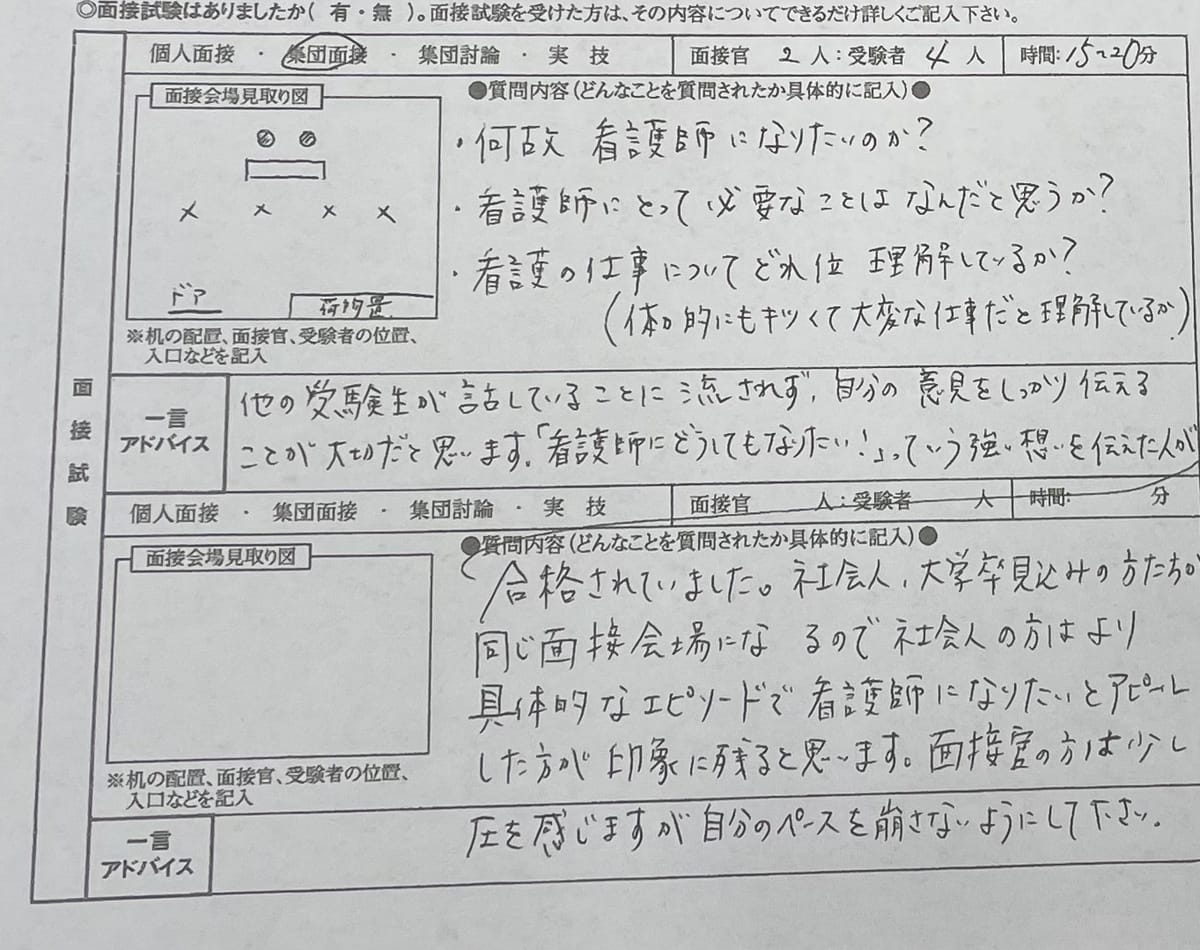 ◎面接試験はありましたか( 有・無 )。面接試験を受けた方は、その内容についてできるだけ詳しくご記入下さい。
面接試験
個人面接 ・ 集団面接 ・ 集団討論 ・ 実 技 面接官 2 人:受験者 4 人 時間:15~20分
面接会場見取り図
ドア
荷物置
※机の配置、面接官、受験者の位置、
入口などを記入
●質問内容(どんなことを質問されたか具体的に記入)●
・何故 看護師になりたいのか?
・看護師にとって必要なことはなんだと思うか?
・看護の仕事についてどれ位 理解しているか?
(体力的にもキツくて大変な仕事だと理解しているか)
一言
アドバイス
他の受験生が話していることに流されず、自分の意見をしっかり伝える
ことが大切だと思います。「看護師にどうしてもなりたい!」っていう強い想いを伝えた人が
個人面接 ・ 集団面接 ・ 集団討論 ・ 実 技 面接官 人:受験者 人 時間: 分
面接会場見取り図
※机の配置、面接官、受験者の位置、
入口などを記入
●質問内容(どんなことを質問されたか具体的に記入)●
合格されていました。社会人、大学卒見込みの方たちが
同じ面接会場になるので社会人の方はより
具体的なエピソードで看護師になりたいとアピール
した方が印象に残ると思います。面接官の方は少し
圧を感じますが自分のペースを崩さないようにして下さい。
一言
アドバイス